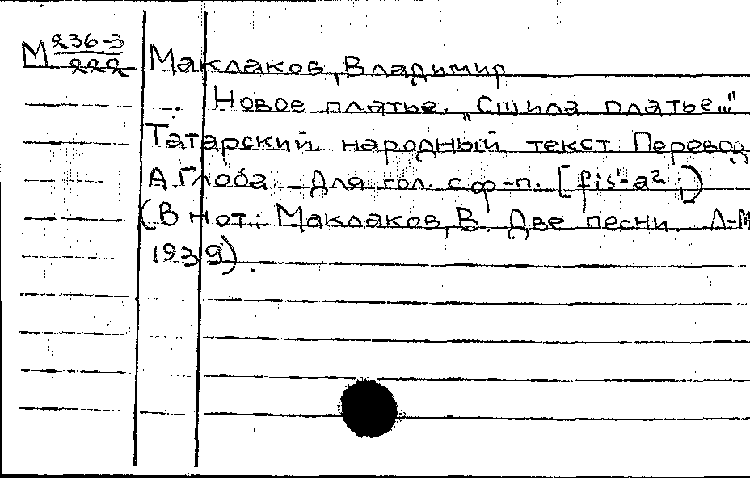 М 236-3/222 Маклаков, Владимир
Новое платье. "Сшила платье..."
Татарский народный текст. Перевод
А. Глоба. Для гол. с ф-п. [fis¹-a²;)
(В нот.: Маклаков, В. Две песни. Л-М
1939).